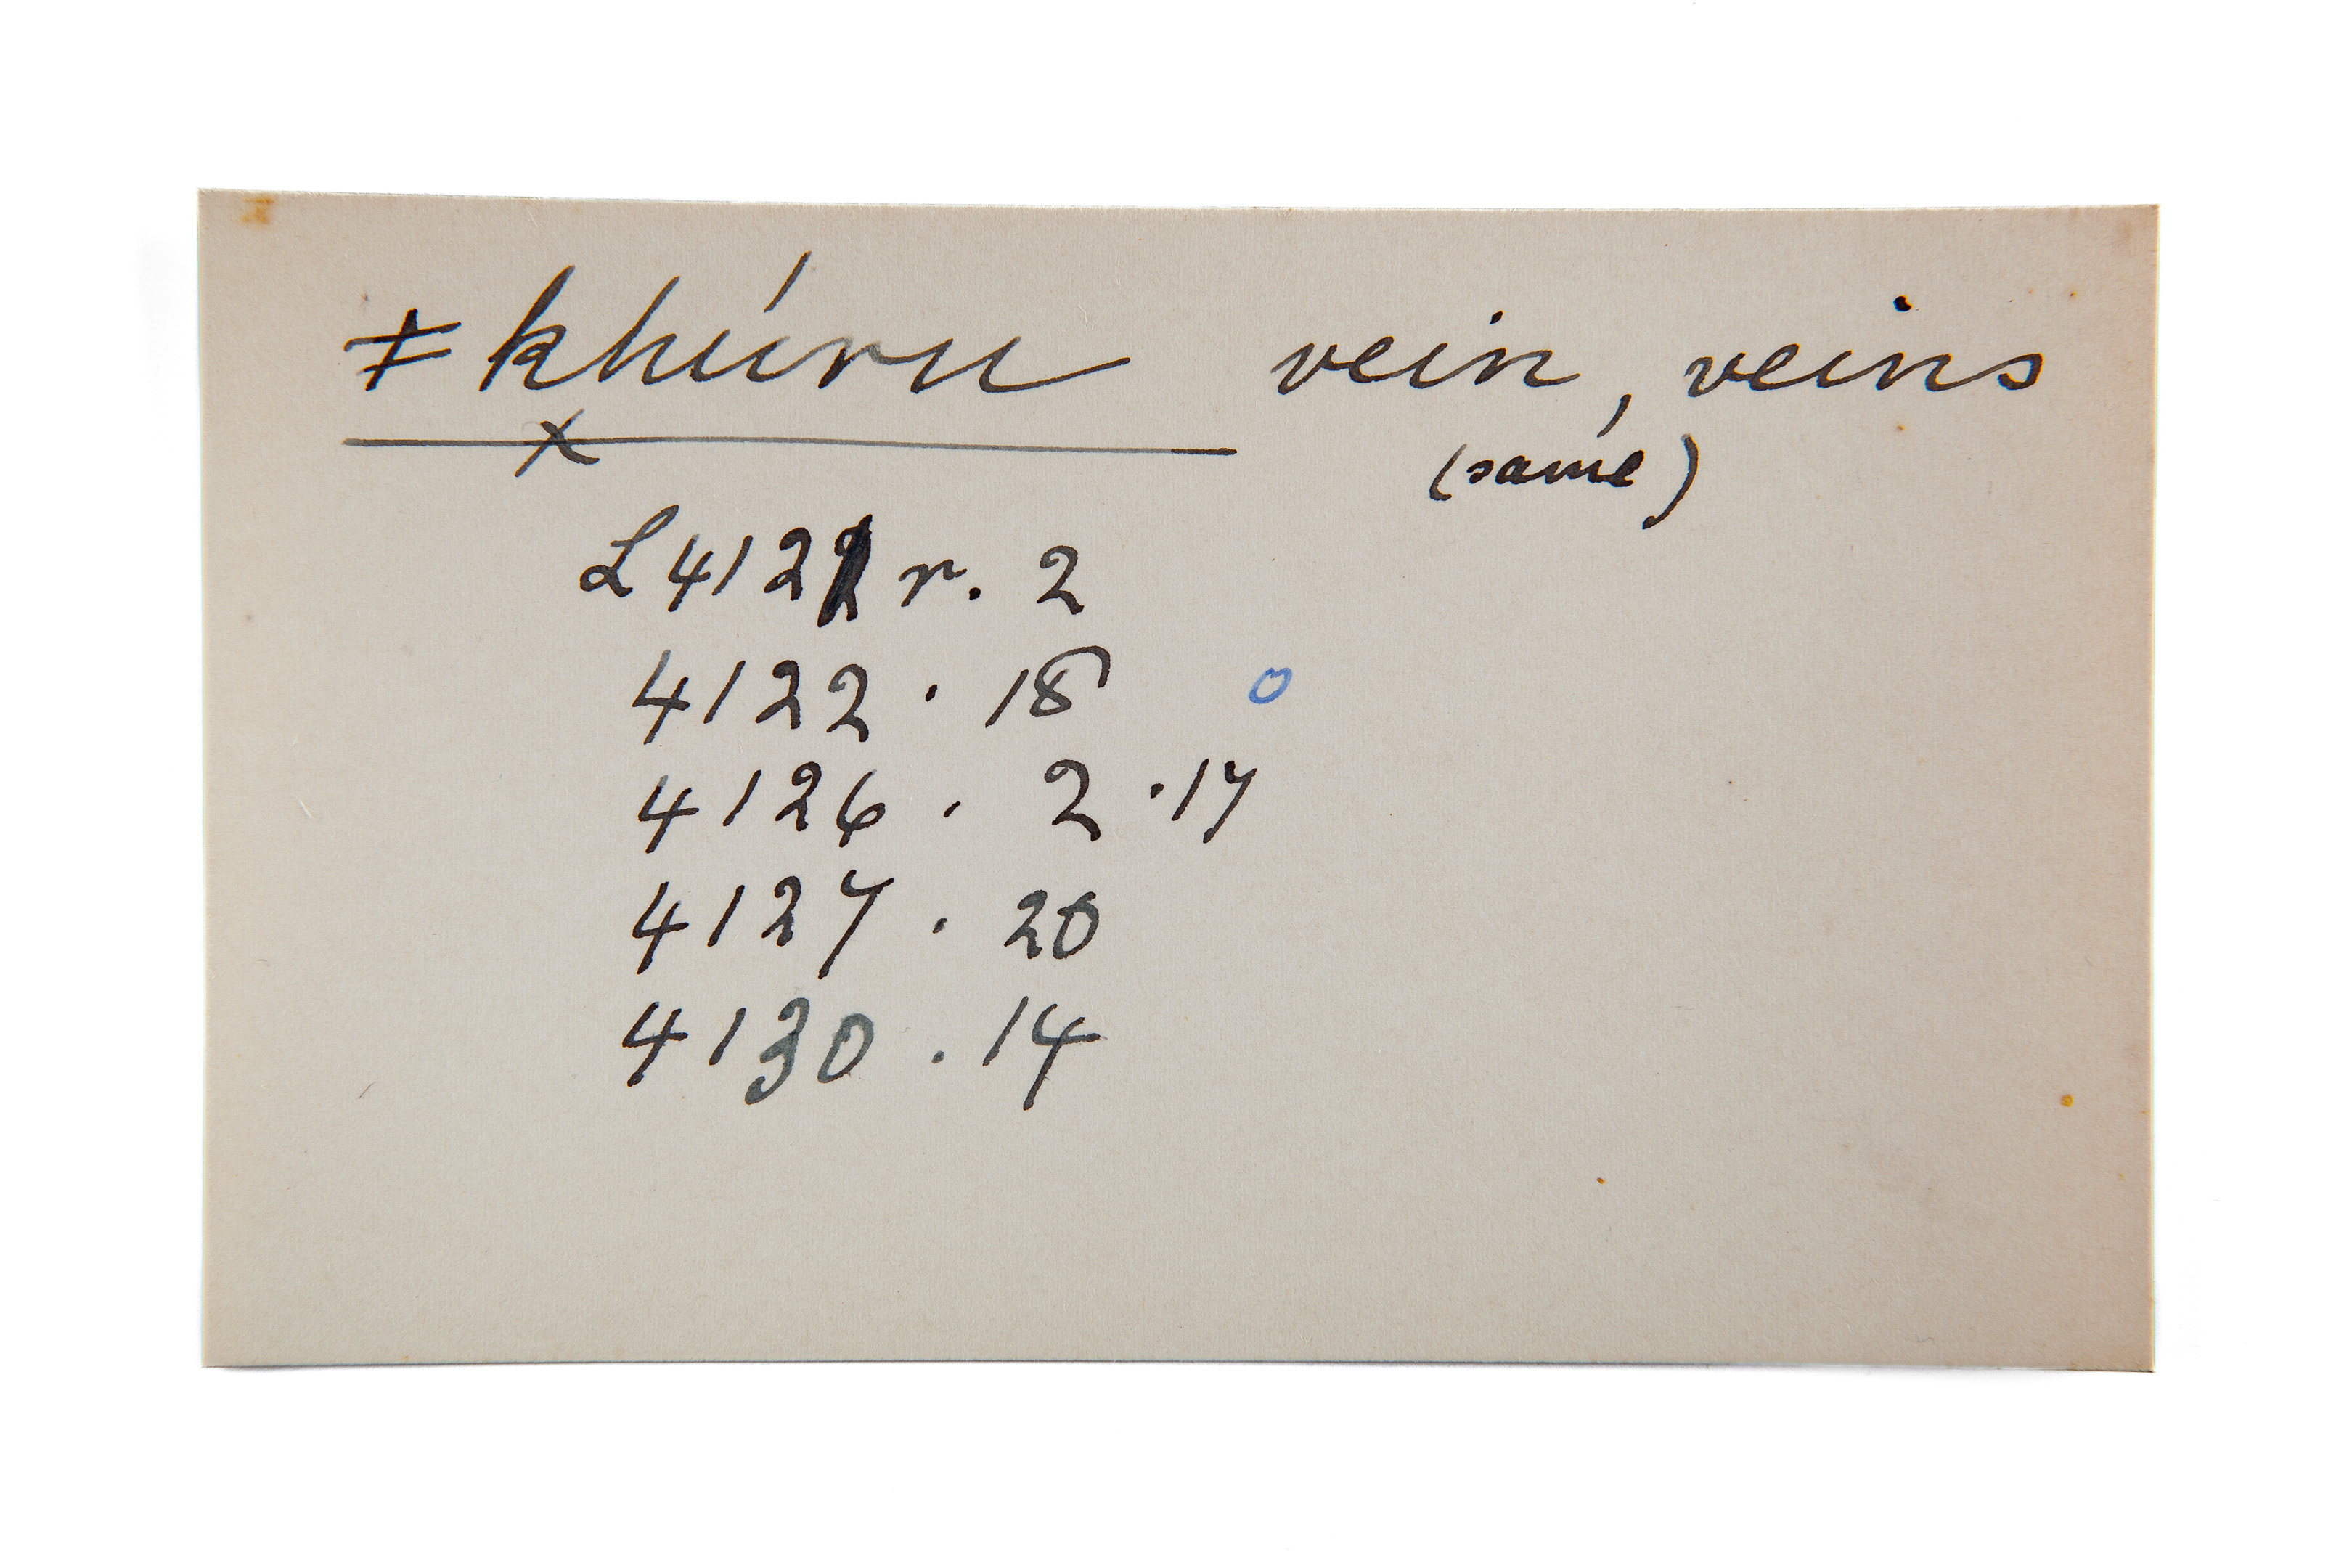 ǂkhúru vein, veins
x (same)
L 4121 r. 2
4122 . 18 o
4126 . 2 . 17
4127 . 20
4130 . 14